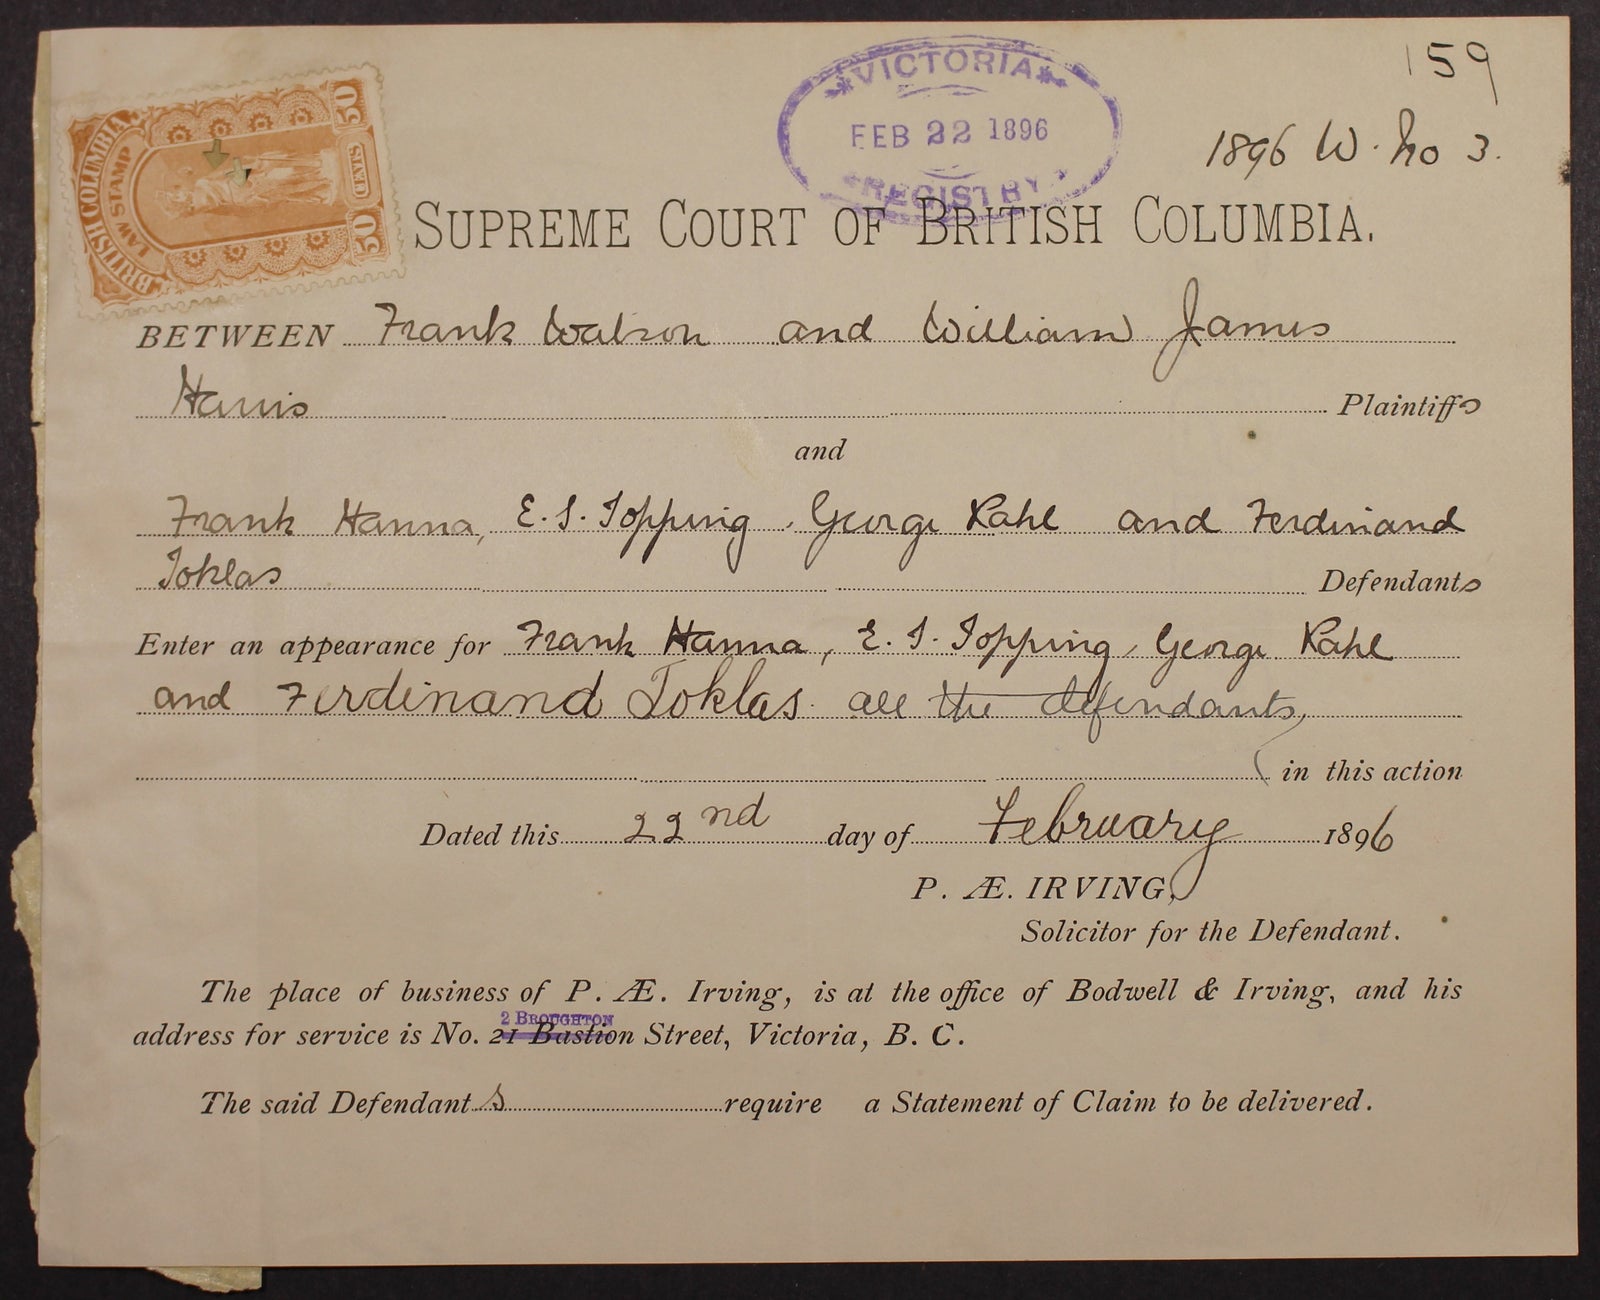 159
VICTORIA
FEB 22 1896
REGISTRY
1896 W. No 3.
BRITISH COLUMBIA
LAW STAMP
50 CENTS 50
SUPREME COURT OF BRITISH COLUMBIA.
BETWEEN Frank Watson and William James
Harris Plaintiffs
and
Frank Hanna, E. S. Topping, George Kahl and Ferdinand
Toklas Defendants
Enter an appearance for Frank Hanna, E. S. Topping, George Kahl
and Ferdinand Toklas all the defendants,
in this action
Dated this 22nd day of February 1896
P. Æ. IRVING,
Solicitor for the Defendant.
The place of business of P. Æ. Irving, is at the office of Bodwell & Irving, and his
2 BROUGHTON
address for service is No. 21 Bastion Street, Victoria, B. C.
The said Defendants require a Statement of Claim to be delivered.